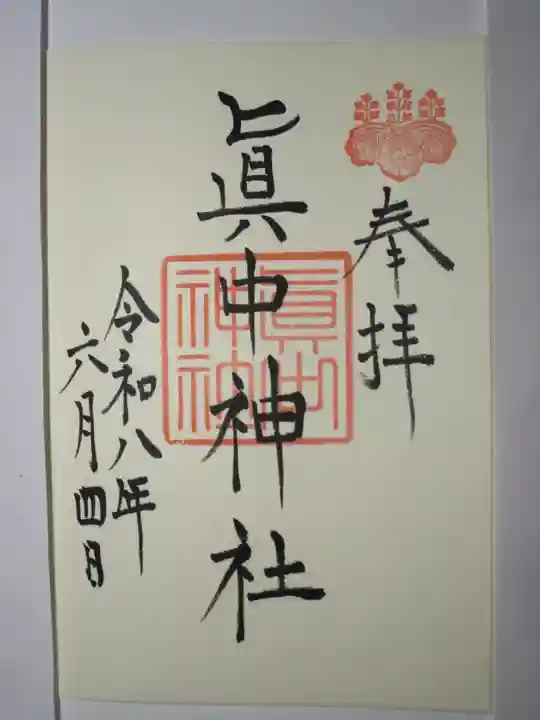 奉拝
眞中神社
眞中
神社
令和八年
六月四日